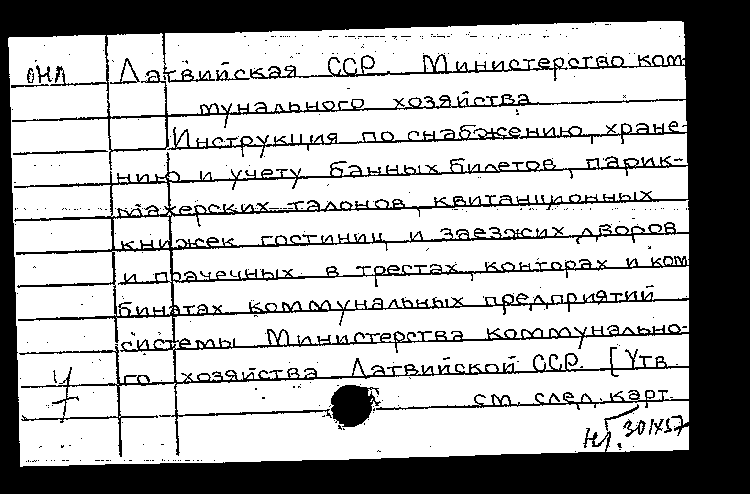 ОНЛ Латвийская ССР. Министерство ком-
мунального хозяйства
Инструкция по снабжению, хране-
нию и учету банных билетов, парик-
махерских талонов, квитанционных
книжек гостиниц и заезжих дворов
и прачечных в трестах, конторах и ком
бинатах коммунальных предприятий
системы Министерства коммунально-
го хозяйства Латвийской ССР. [Утв
см. след. карт.